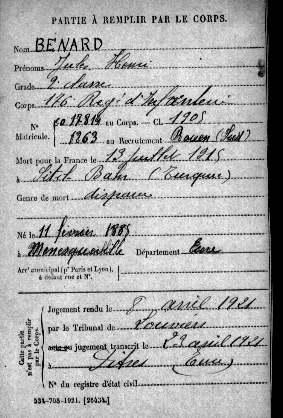 PARTIE À REMPLIR PAR LE CORPS.
Nom BENARD
Prénoms Jules Henri
Grade 2e classe
Corps 176 Regt d'Infanterie
N° Matricule. 12814 au Corps. — Cl. 1905
1263 au Recrutement Rouen (Sud)
Mort pour la France le 13 juillet 1915
à Sitil Bahr (Turquie)
Genre de mort disparu
Né le 11 février 1885
à Menesqueville Département Eure
Arrt municipal (pr Paris et Lyon), à défaut rue et N°.
Cette partie n'est pas à remplir par le Corps.
Jugement rendu le 8 avril 1921
par le Tribunal de Louviers
jugement transcrit le 23 avril 1921
à (Eure)
N° du registre d'état civil
534-708-1921. [26434.]